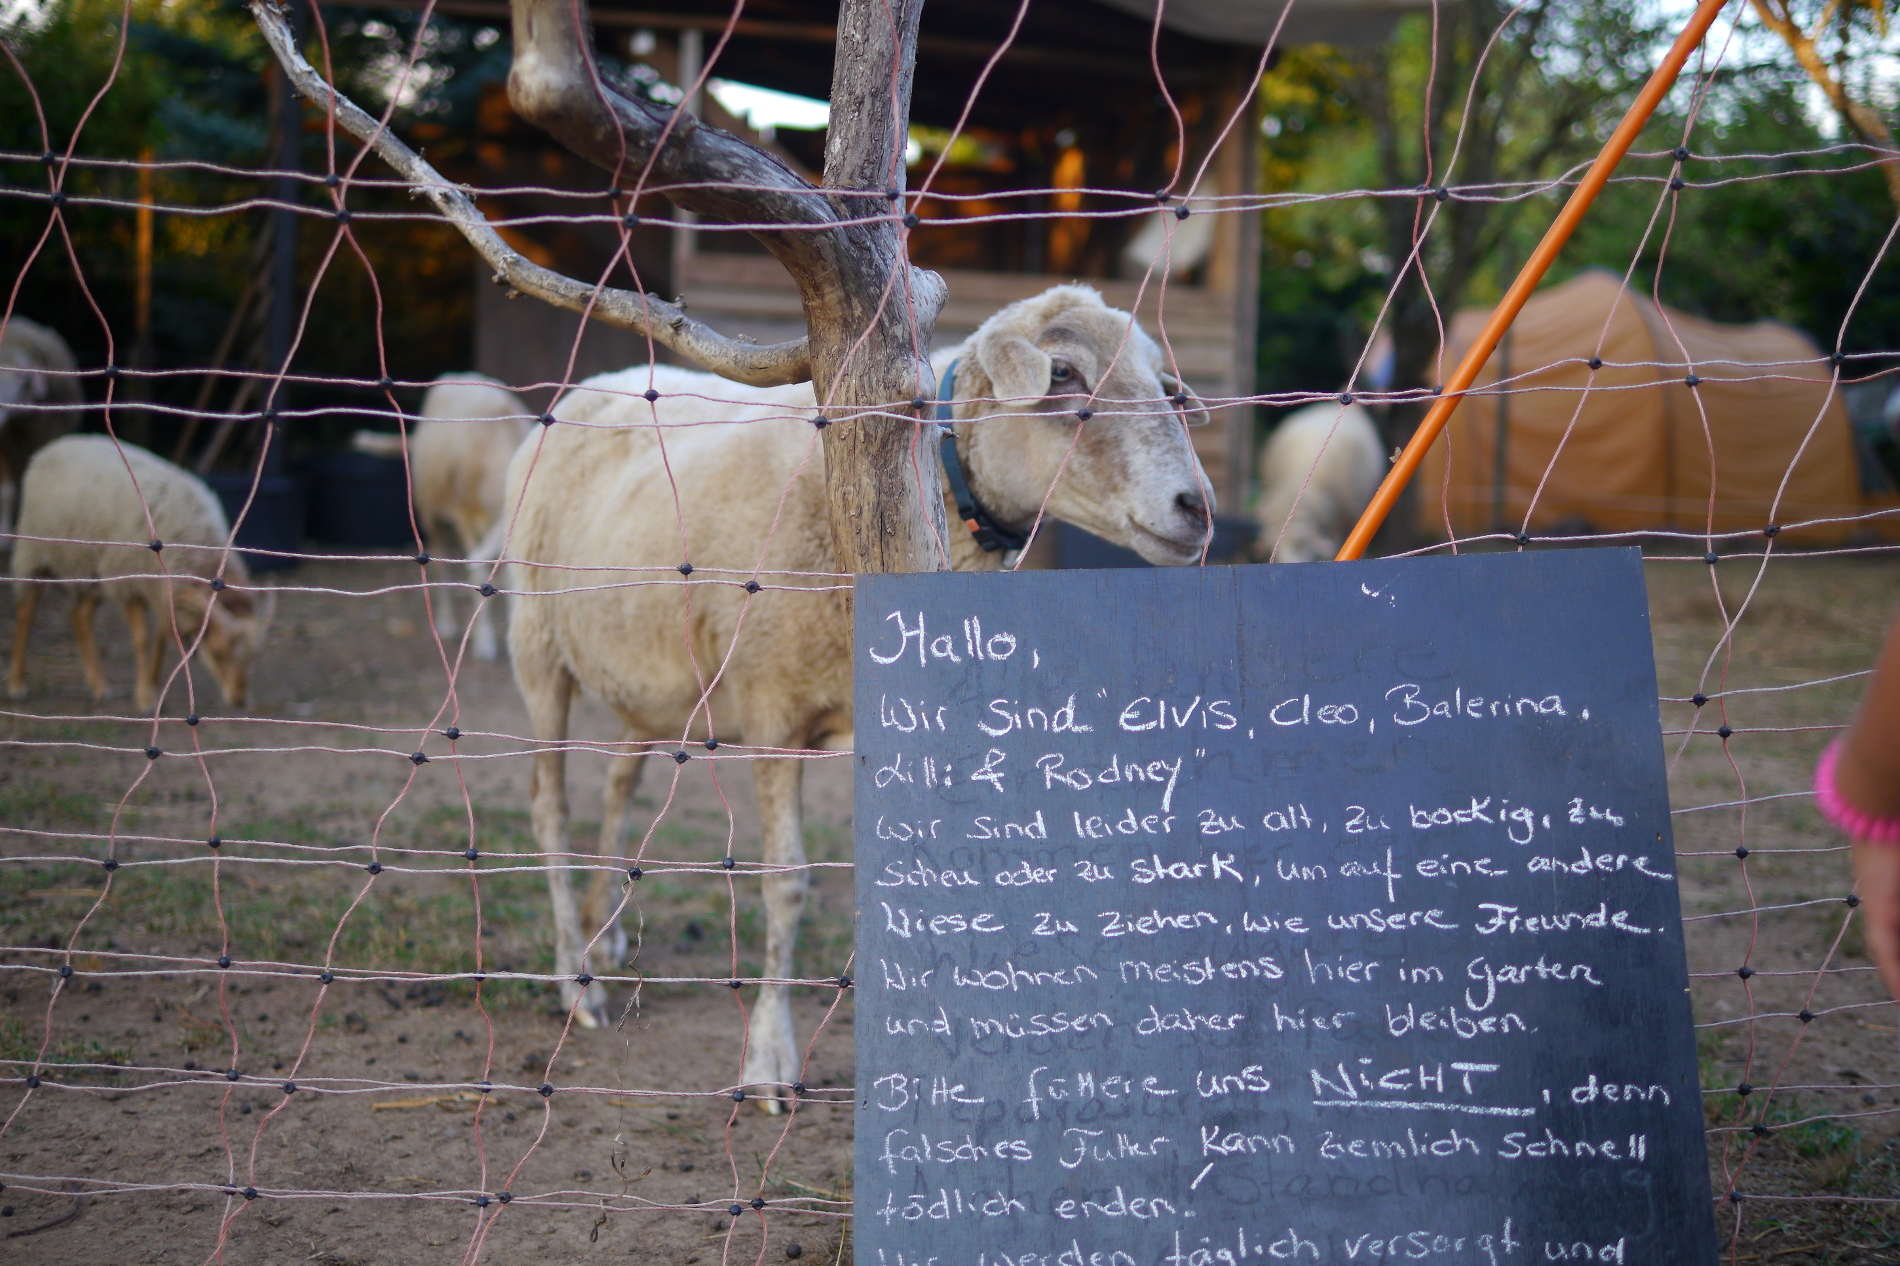 Hallo,
Wir sind "Elvis, Cleo, Balerina,
Lilli & Rodney"
Wir sind leider zu alt, zu bockig, zu
scheu oder zu stark, um auf eine andere
Wiese zu ziehen, wie unsere Freunde.
Wir wohnen meistens hier im Garten
und müssen daher hier bleiben.
Bitte füttere uns NICHT, denn
falsches Futter kann ziemlich schnell
tödlich enden!
Wir werden täglich versorgt und